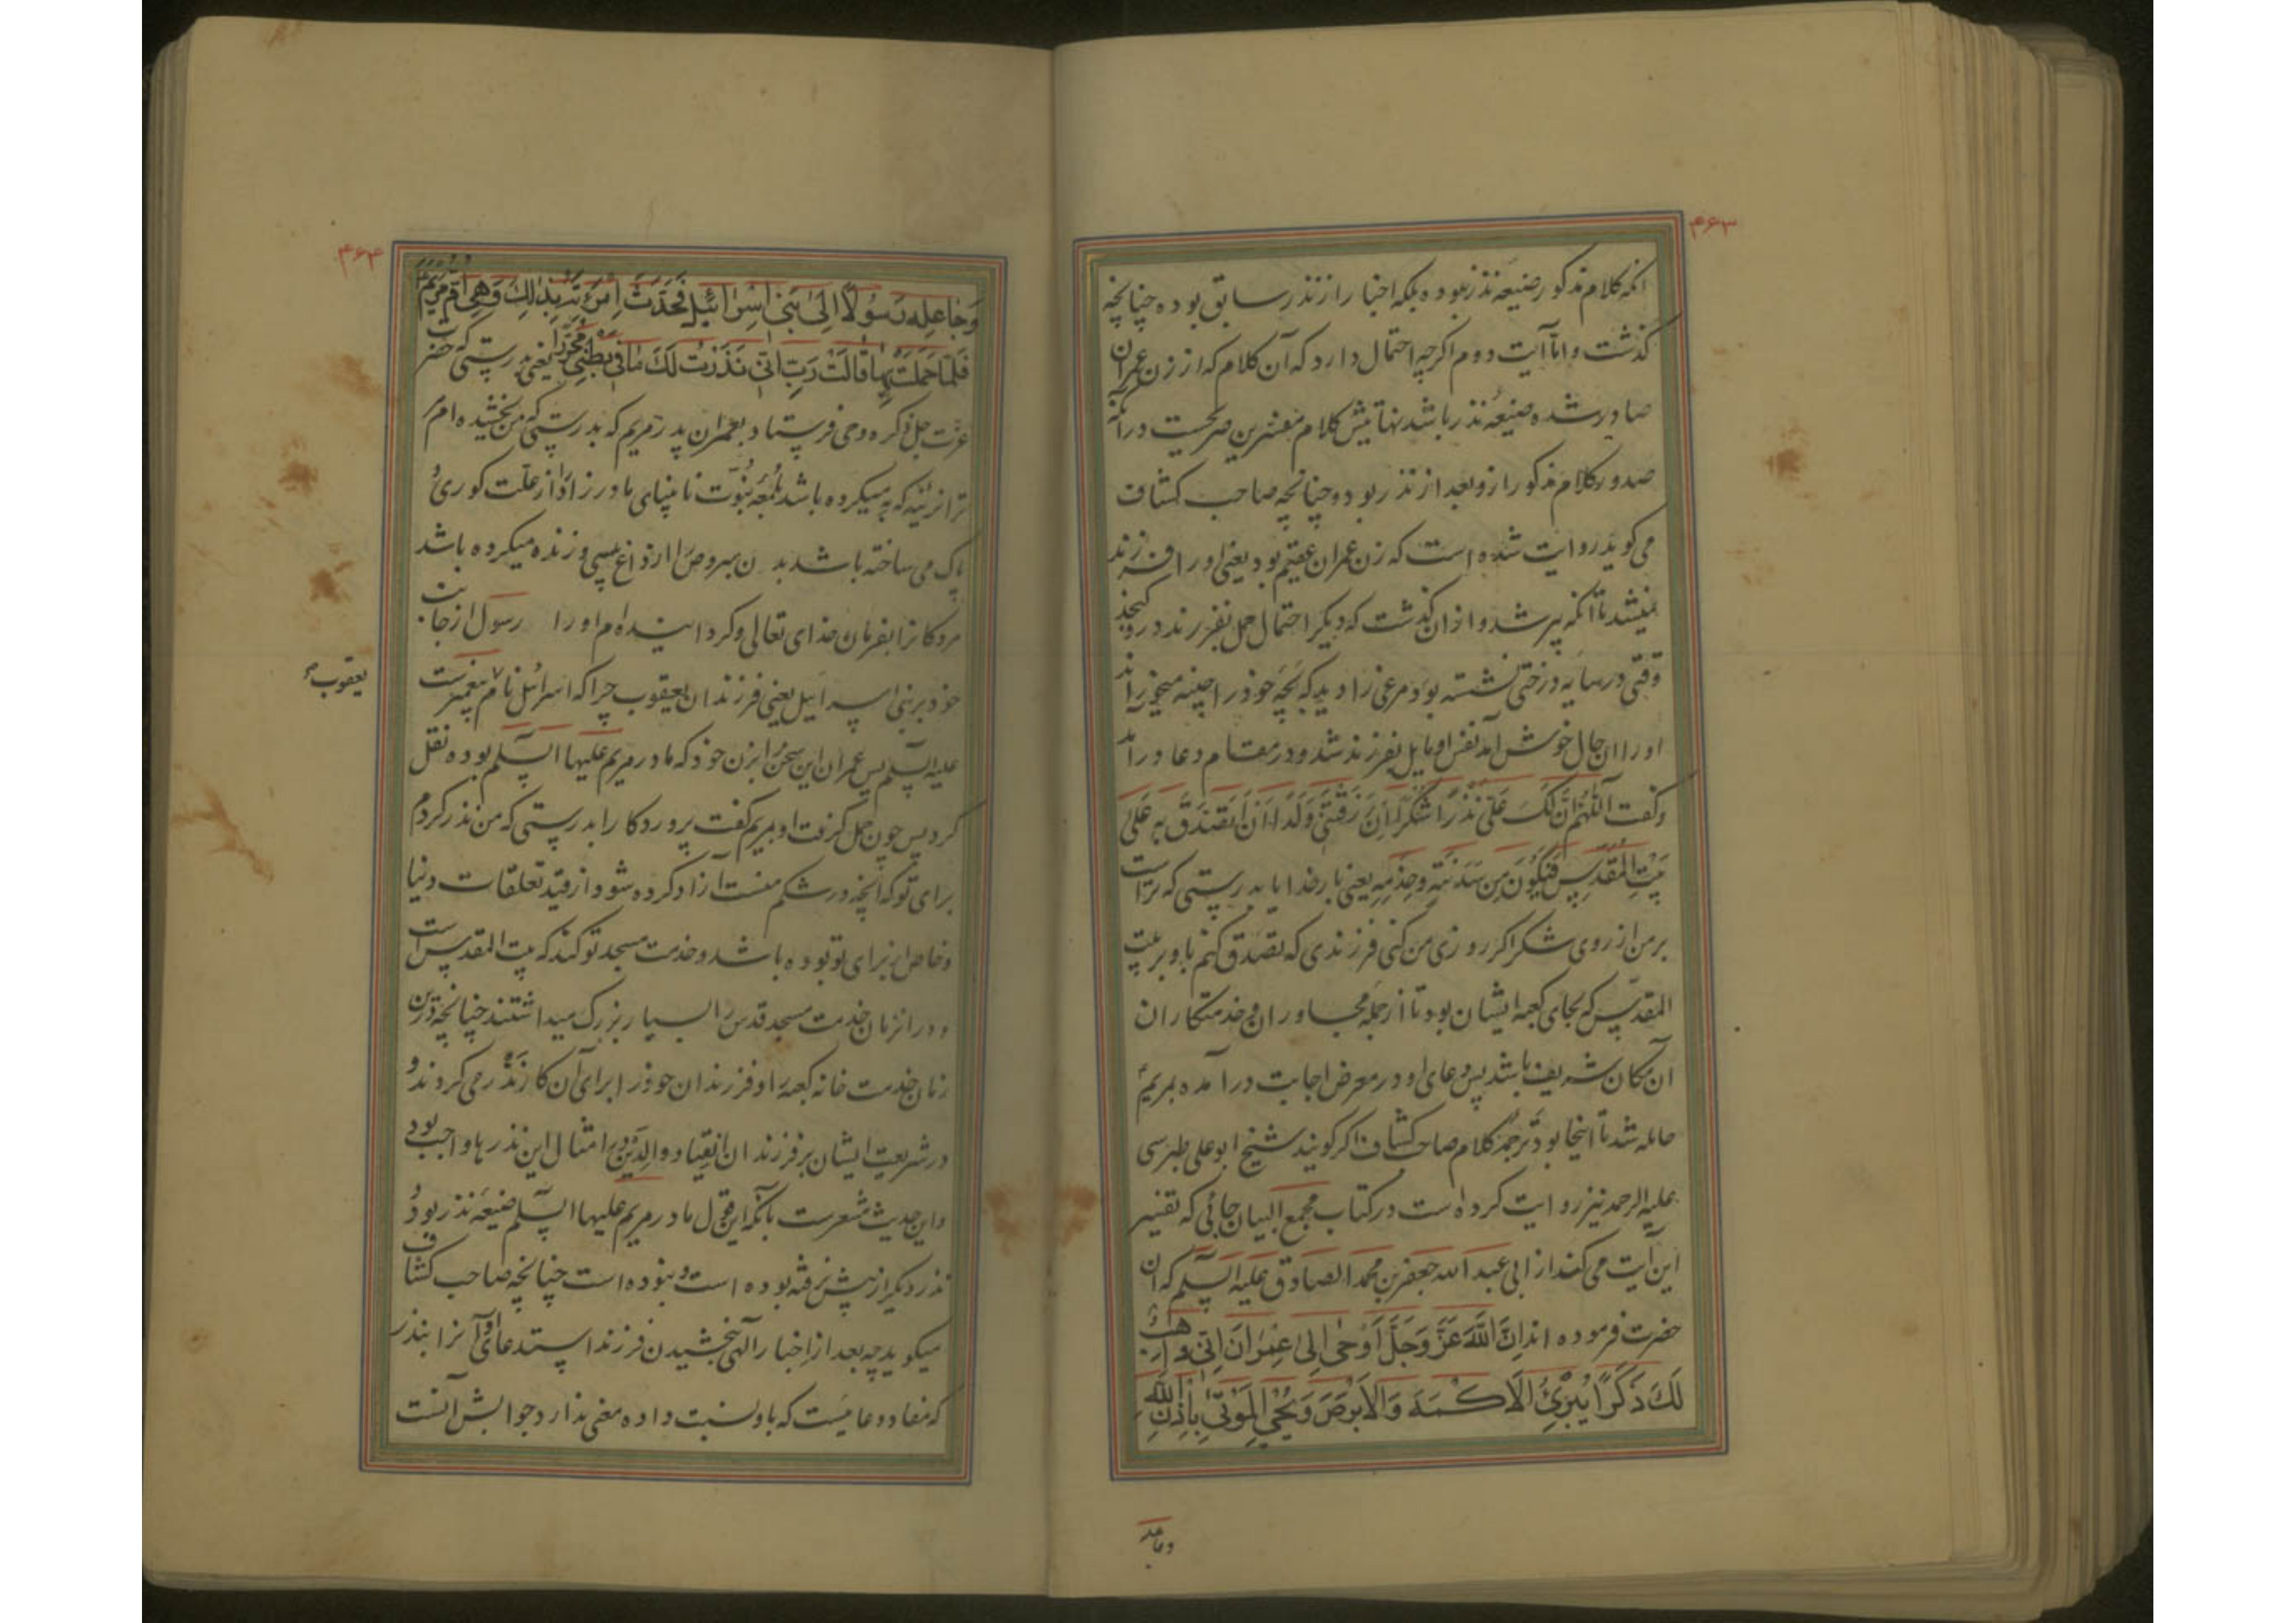 ۴۶۳
آنکه کلام مذکور صیغه نذر نبوده بلکه اخبار از نذر سابق بوده چنانچه
گذشت و اما آیت دوم اگرچه احتمال دارد که آن کلام که از زن عمران
صادر شده صیغهٔ نذر باشد نهایتش کلام مفسرین صریحست در آنکه
صدور کلام مذکور ازو بعد از نذر بوده چنانچه صاحب کشاف
می گوید روایت شده است که زن عمران عقیم بود یعنی او را فرزند
نمیشد تا آنکه پیر شد و از آن گذشت که دیگر احتمال حمل بفرزند درو گنجد
وقتی در سایه درختی نشسته بود مرغی را دید که بچه خود را چینه میخوراند
او را آن حال خوش آمد نفس او مایل بفرزند شد و در مقام دعا درآمد
و گفت اللهم ان لک علی نذرا شکرا ان رزقتنی ولدا ان اتصدق به علی
بیت المقدس فیکون من سدنته و خدمه یعنی بار خدایا بدرستی که تراست
بر من از روی شکر اگر روزی من کنی فرزندی که تصدق کنم باو بر بیت
المقدس که بجای کعبه ایشان بود تا از جمله مجاوران و خدمتکاران
آن مکان شریف باشد پس دعای او در معرض اجابت درآمده بمریم
حامله شد تا اینجا بود ترجمه کلام صاحب کشاف اگر گویند شیخ ابو علی طبرسی
علیه الرحمه نیز روایت کرده است در کتاب مجمع البیان جائی که تفسیر
این آیت می کند از ابی عبد الله جعفر بن محمد الصادق علیه السلم که آن
حضرت فرموده اند ان الله عز وجل اوحی الی عمران انی واهب
لک ذکرا یبرئ الاکمه والابرص ویحیی الموتی باذن الله
وجاعله
۴۶۴
وجاعله رسولا الی بنی اسرائیل فحدث امرته بذلک وهی ام مریم
فلما حملت بها قالت رب انی نذرت لک ما فی بطنی محررا یعنی بدرستی که حضرت
عزت جل ذکره وحی فرستاد بعمران پدر مریم که بدرستی که من بخشیده ام
ترا نرینه که به میکرده باشد نابینای مادرزاد را از علت کوری
پاک می ساخته باشد بدن مبروص را از داغ پیسی و زنده میکرده باشد
مردگانرا بفرمان خدای تعالی و گردانیده ام او را رسول از جانب
خود بر بنی اسرائیل یعنی فرزندان یعقوب چرا که اسرائیل نام پیغمبرست
یعقوب
علیه السلم پس عمران این سخن را بزن خود که مادر مریم علیها السلم بوده نقل
کرد پس چون حمل گرفت او بمریم گفت پروردگارا بدرستی که من نذر کردم
برای تو که آنچه در شکم منست آزاد کرده شود از قید تعلقات دنیا
و خاص از برای تو بوده باشد و خدمت مسجد تو کند که بیت المقدس است
و در آنزمان خدمت مسجد قدس را بسیار بزرگ میداشتند چنانچه درین
زمان خدمت خانه کعبه را و فرزندان خود را برای آن کار نذر می کردند و
در شریعت ایشان بر فرزندان انقیاد والدین در امثال این نذرها واجب بود
و این حدیث مشعرست بآنکه این قول مادر مریم علیها السلم صیغه نذر بود و
نذر دیگر از پیش نرفته بوده است و نبوده است چنانچه صاحب کشاف
میگوید چه بعد از اخبار الهی ببخشیدن فرزند استدعای او آنرا بنذر
که مفاد دعائیست که باو نسبت داده معنی ندارد جوابش آنست